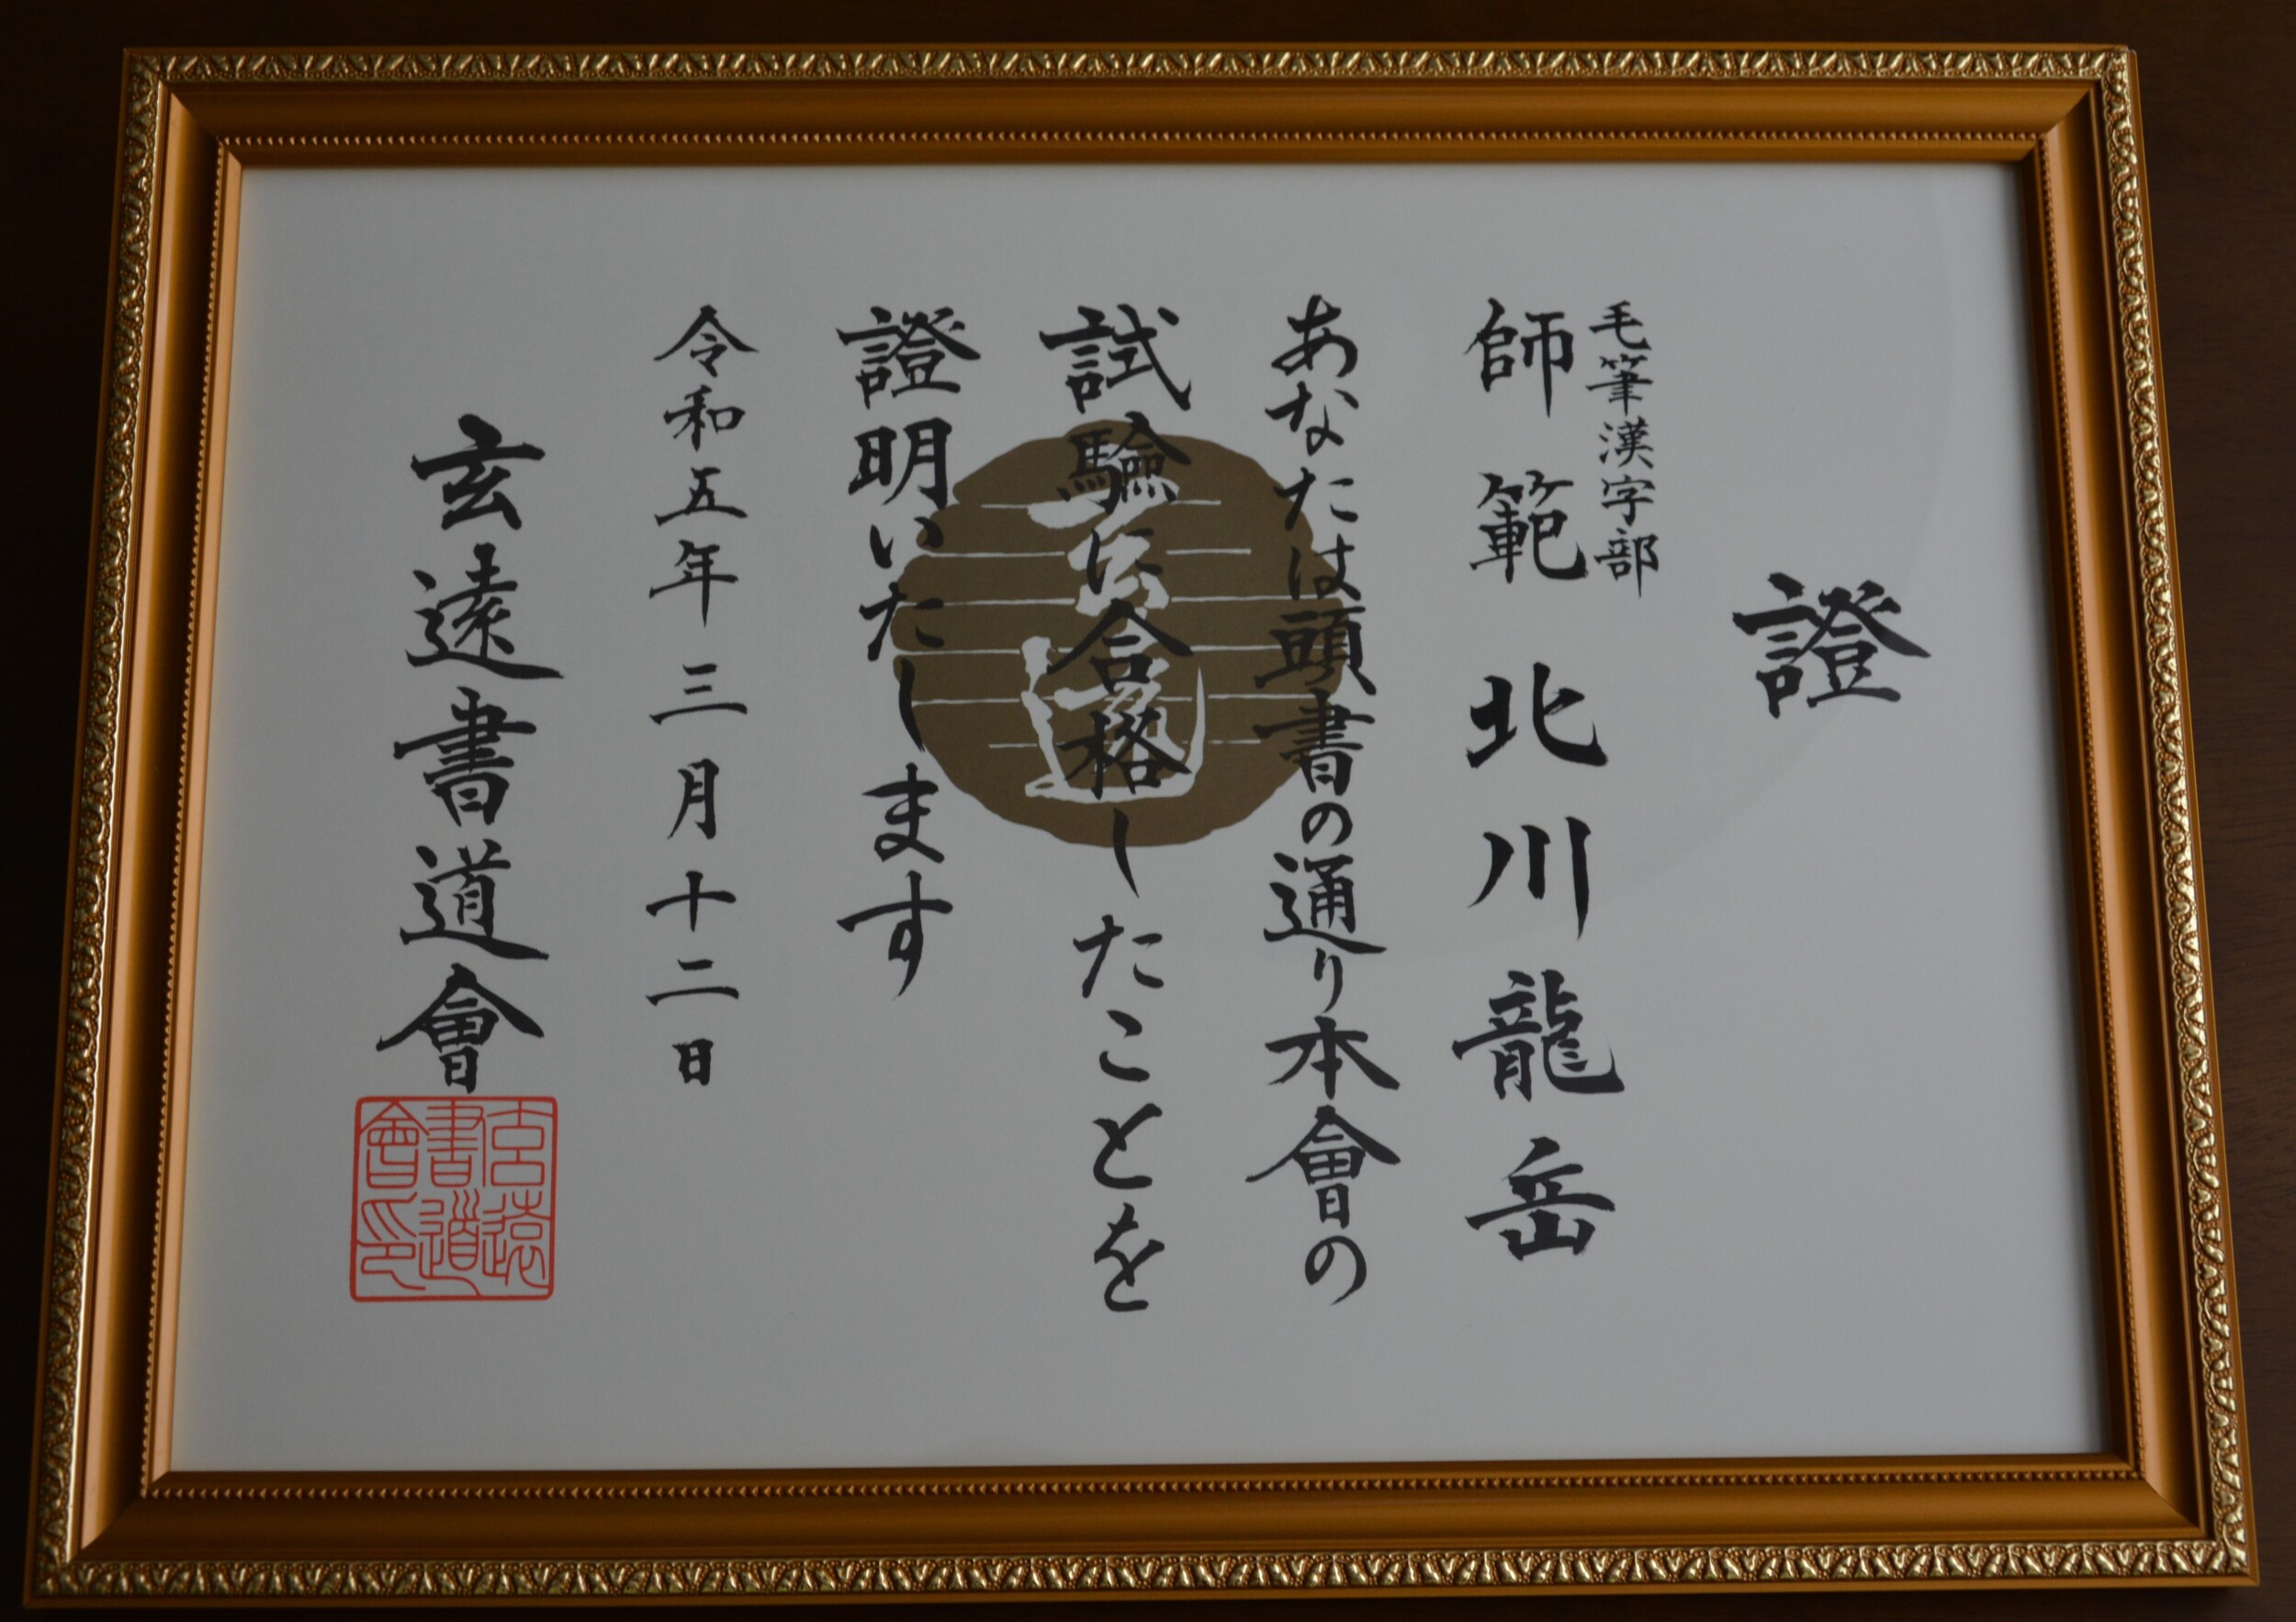 證
毛筆漢字部
師範 北川龍岳
あなたは頭書の通り本會の
試驗に合格したことを
證明いたします
令和五年三月十二日
玄遠書道會
玄遠
書道
會印